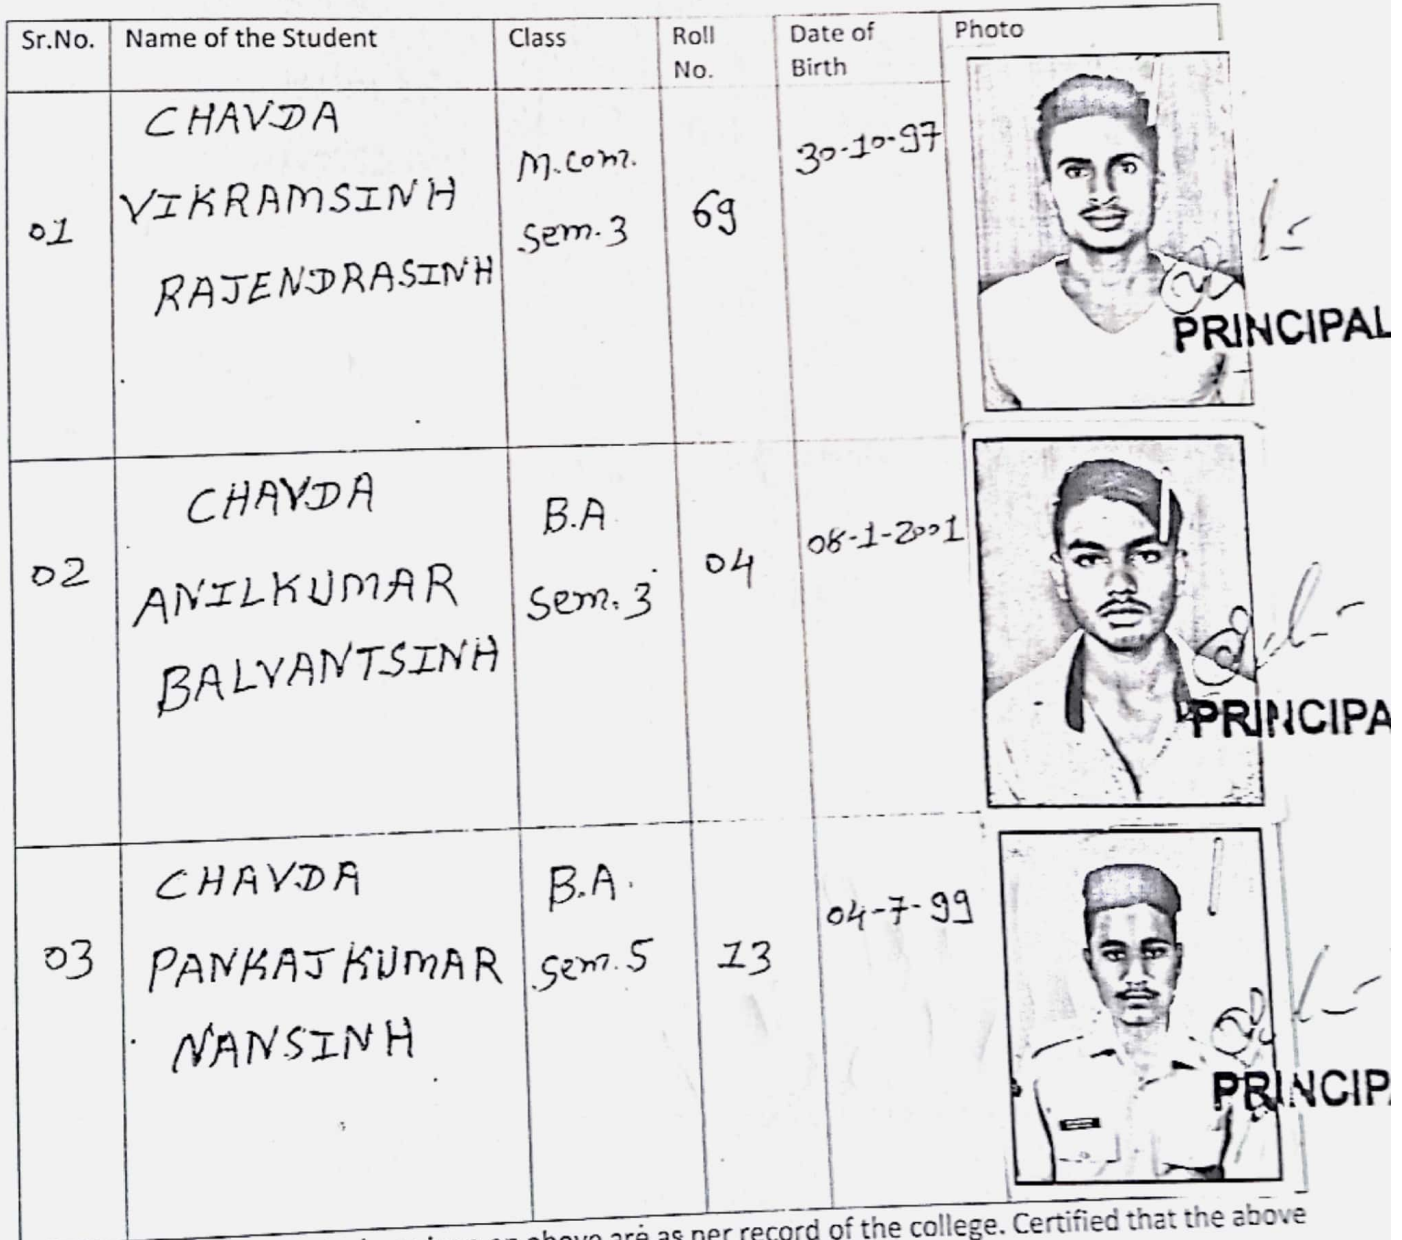 Sr.No. Name of the Student Class Roll No. Date of Birth Photo
01 CHAVDA VIKRAMSINH RAJENDRASINH M.com. Sem.3 69 30-10-97
PRINCIPAL
02 CHAVDA ANILKUMAR BALVANTSINH B.A Sem.3 04 08-1-2001
PRINCIPA
03 CHAVDA PANKAJKUMAR NANSINH B.A. Sem.5 13 04-7-99
PRINCIP
above are as per record of the college. Certified that the above